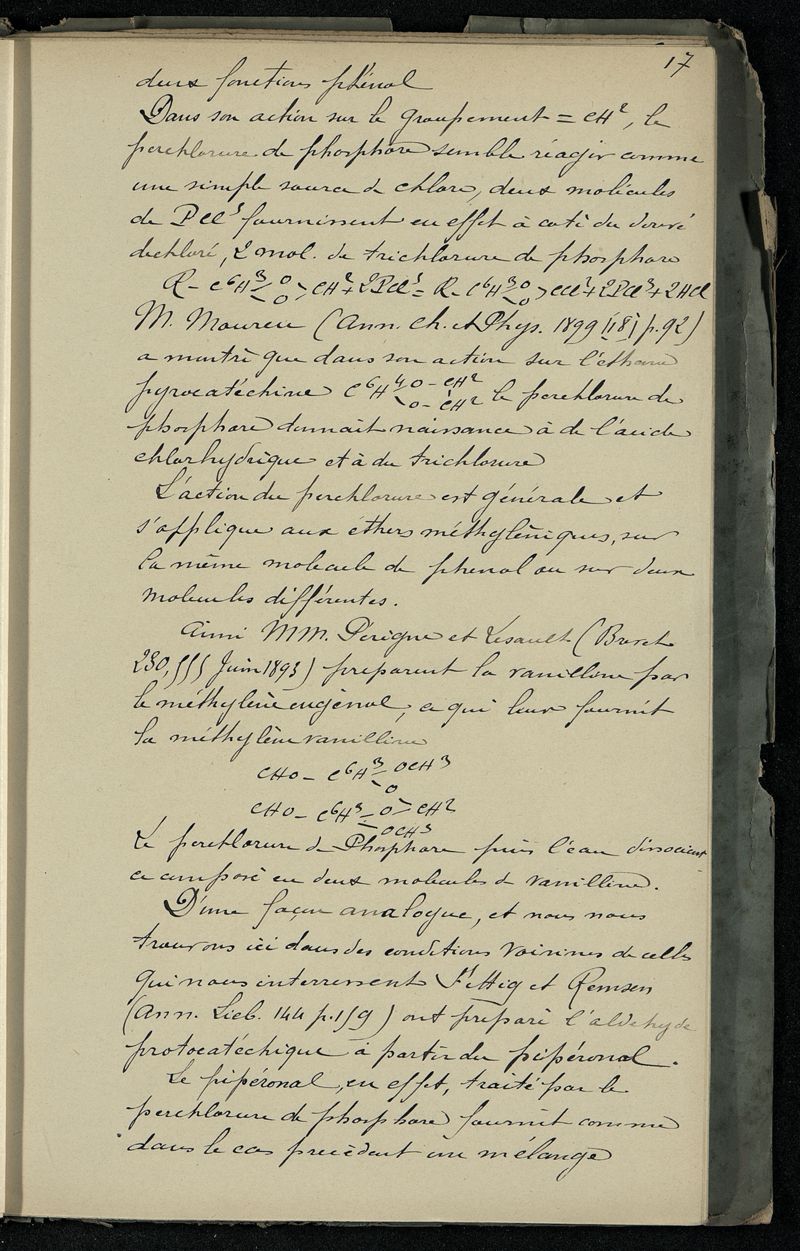 17
deux fonctions phénol
Dans son action sur le groupement = CH², le
perchlorure de phosphore semble réagir comme
une simple source de chlore, deux molécules
de PCl⁵ fournissent en effet à coté du dérivé
dichloré, 2 mol. de trichlorure de phosphore
R - C⁶H³ = O O > CH² + 2PCl⁵ = R - C⁶H³ = O O > CCl² + 2PCl³ + 2HCl
M. Moureu (Ann. Ch. et Phys. 1899 [18] p. 92)
a montré que dans son action sur l'éthane
pyrocatéchine C⁶H⁴ O - CH²
O - CH² le perchlorure de
phosphore donnait naissance à de l'acide
chlorhydrique et à du trichlorure
L'action du perchlorure est générale et
s'applique aux éthers méthyléniques, sur
la même molécule de phenol ou sur deux
molecules différentes.
Ainsi MM. Périgne et Lesault (Brevet
230, Juin 1893) preparent la vanilline par
le méthylène eugénol, ce qui leur fournit
la méthylène vanilline
CHO - C⁶H³ = OCH³
O
CHO - C⁶H³ = O > CH²
OCH³
Le perchlorure de Phosphore puis l'eau dissocient
ce composé en deux molecules de vanilline.
D'une façon analogue, et nous nous
trouvons ici dans des conditions voisines de celles
qui nous interressent Fittig et Remsen
(Ann. Lieb. 144 p. 159) ont préparé l'aldehyde
protocatéchique à partir du pipéronal.
Le pipéronal, en effet, traité par le
perchlorure de phosphore fournit comme
dans le cas precédent un mélange